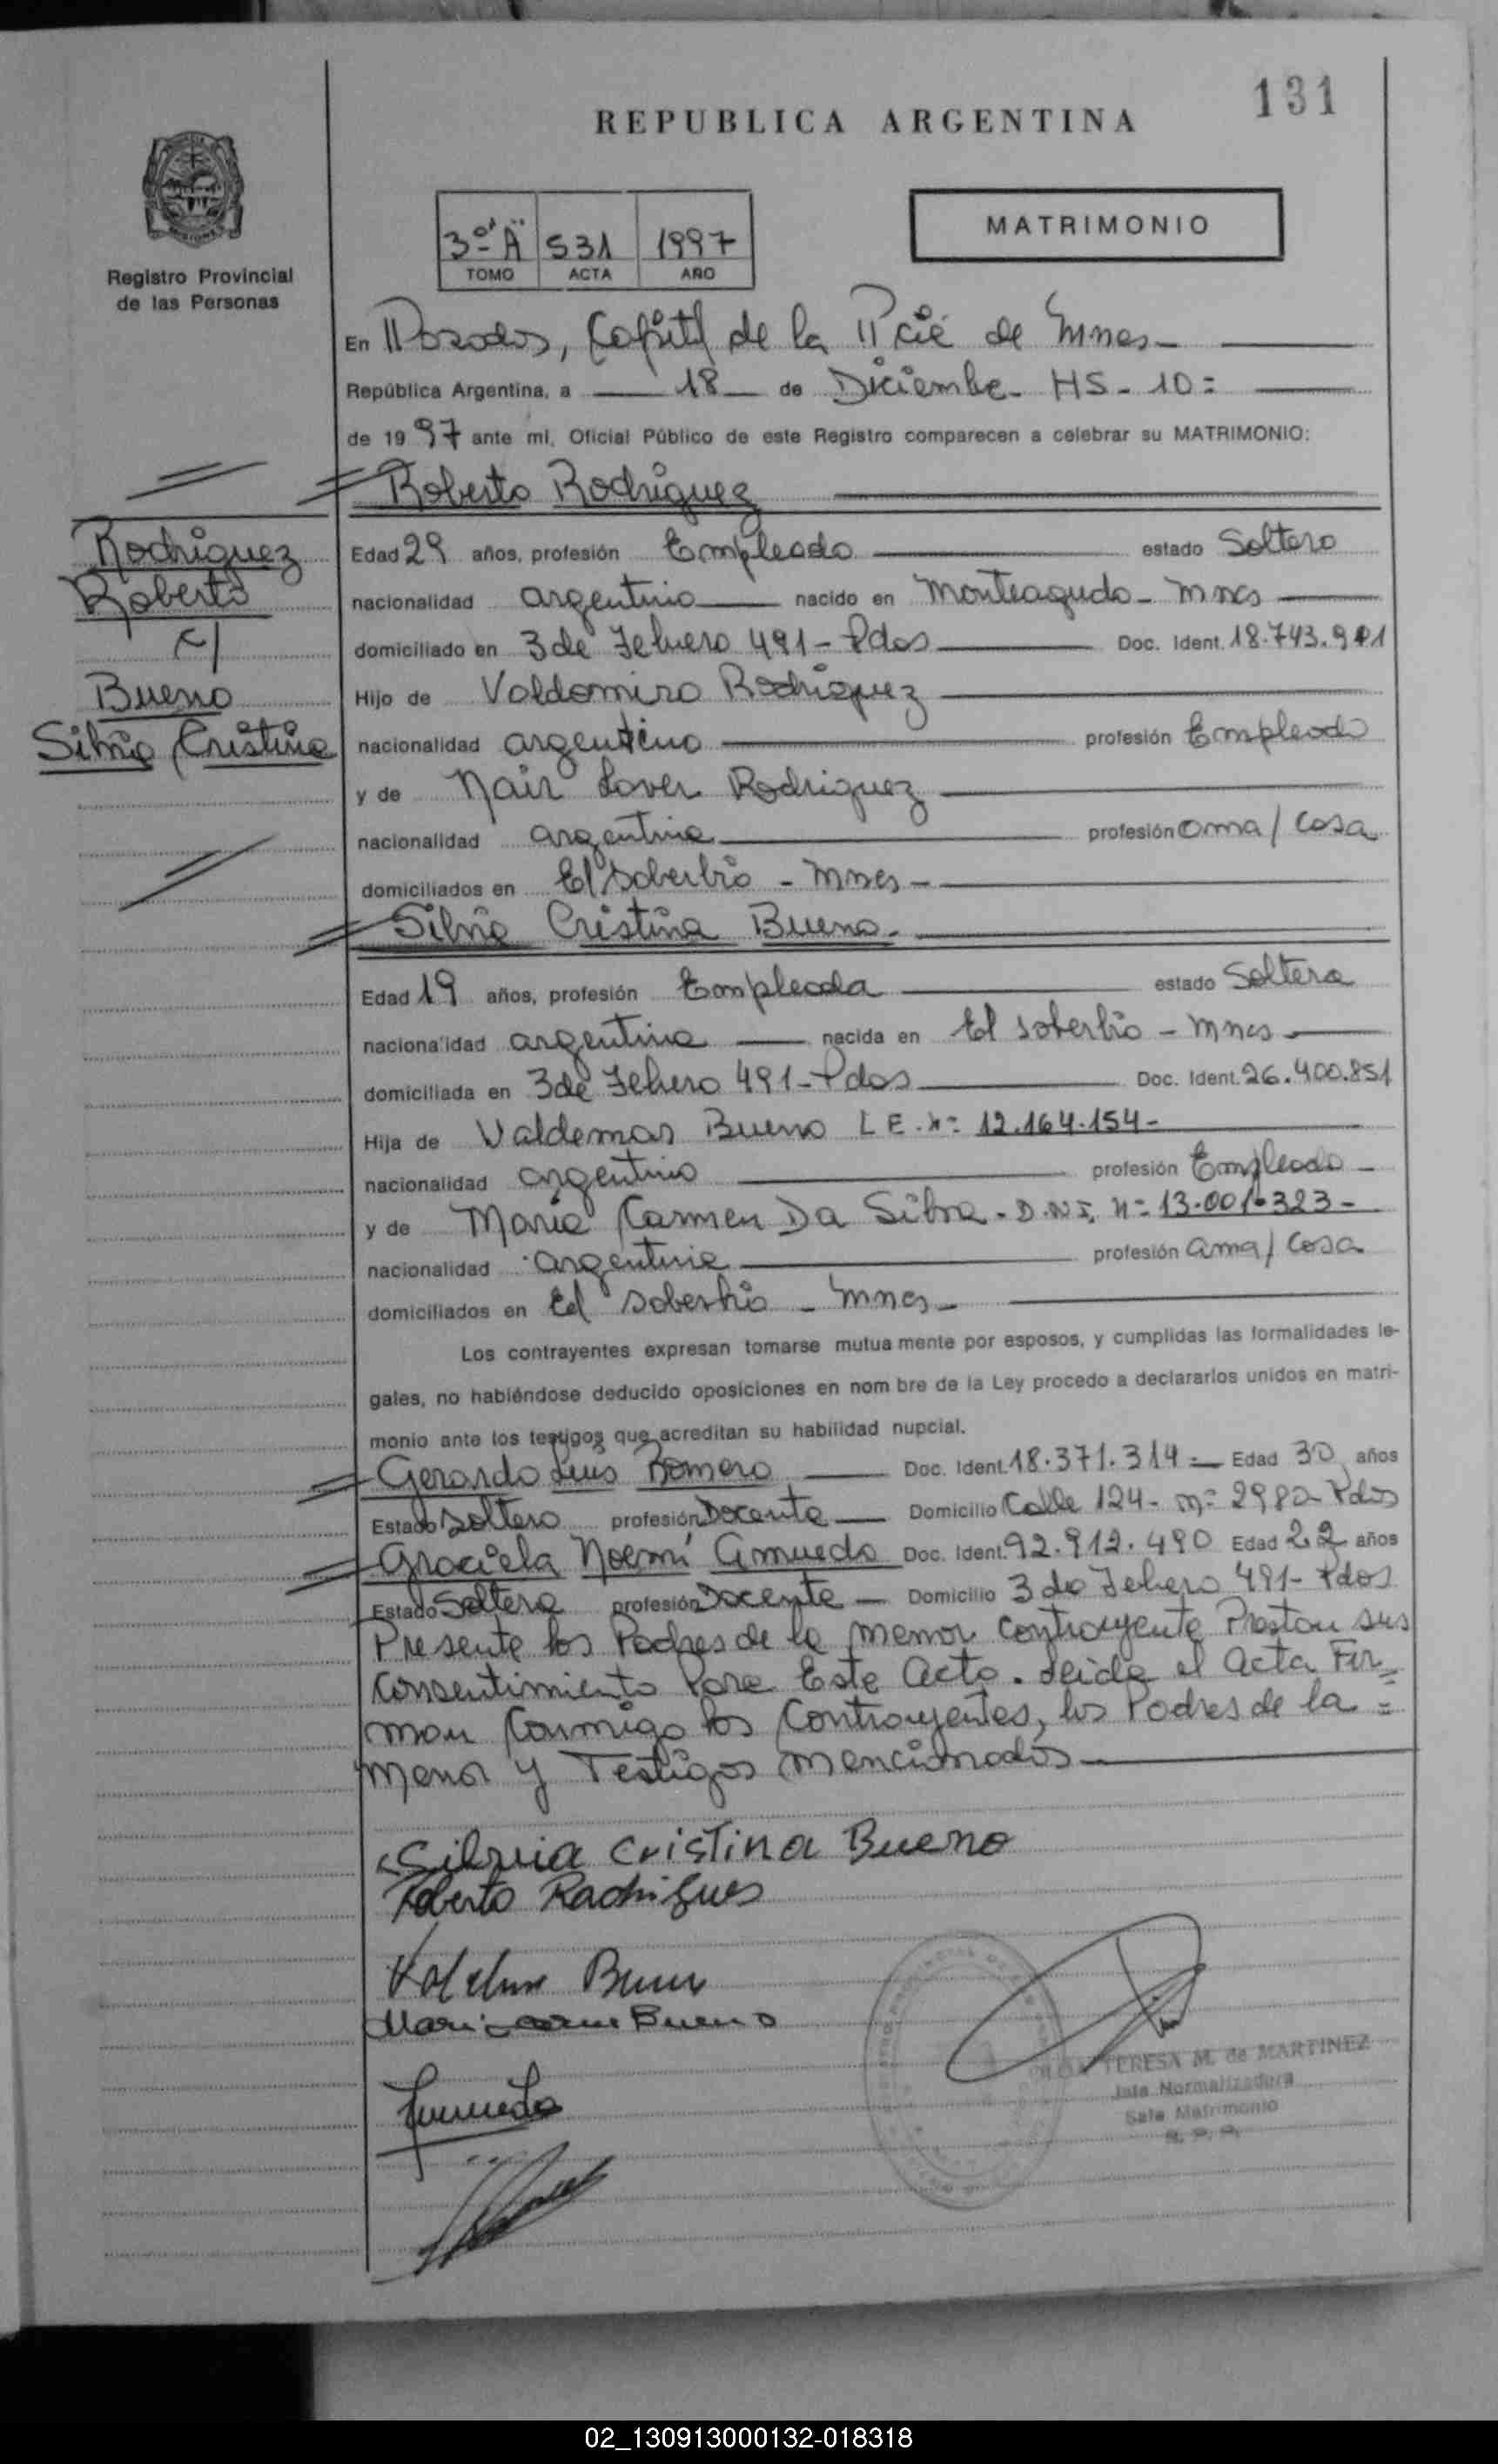 131
REPUBLICA ARGENTINA
3º "A" 531 1997
TOMO ACTA AÑO
MATRIMONIO
Registro Provincial
de las Personas
En Posadas, Capital de la Pcié de Mnes-
República Argentina, a 18 de Diciembre- HS- 10=
de 1997 ante mi, Oficial Público de este Registro comparecen a celebrar su MATRIMONIO:
Roberto Rodriguez
Rodriguez
Roberto
c/
Bueno
Silvia Cristina
Edad 29 años, profesión Empleado estado Soltero
nacionalidad argentino nacido en Monteagudo- Mnes
domiciliado en 3 de Febrero 491- Pdas Doc. Ident. 18.743.901
Hijo de Valdomiro Rodriguez
nacionalidad argentino profesión Empleado
y de Nair Lover Rodriguez
nacionalidad argentina profesión ama/casa
domiciliados en El Soberbio - Mnes-
Silvia Cristina Bueno.
Edad 19 años, profesión Empleada estado Soltera
nacionalidad argentina nacida en El Soberbio - Mnes
domiciliada en 3 de Febrero 491- Pdas Doc. Ident. 26.400.851
Hija de Valdemar Bueno L E. Nº 12.164.154-
nacionalidad argentino profesión Empleado
y de Maria Carmen Da Silva - D.N.I. Nº 13.001.323-
nacionalidad argentina profesión ama/casa
domiciliados en El Soberbio - Mnes-
Los contrayentes expresan tomarse mutua mente por esposos, y cumplidas las formalidades le-
gales, no habiéndose deducido oposiciones en nom bre de la Ley procedo a declararlos unidos en matri-
monio ante los testigos que acreditan su habilidad nupcial.
Gerardo Luis Romero Doc. Ident. 18.371.314 Edad 30 años
Estado Soltero profesión Docente Domicilio Calle 124- Nº 2982- Pdas
Graciela Noemí Amuedo Doc. Ident. 92.912.490 Edad 22 años
Estado Soltera profesión Docente Domicilio 3 de Febrero 491- Pdas
Presente los Padres de la menor contrayente Prestan sus
consentimiento Para Este Acto. Leida el Acta Fir=
man Conmigo los Contrayentes, los Padres de la =
menor y Testigos mencionados
Silvia Cristina Bueno
Roberto Rodrigues
Bueno
Bueno
TERESA M. de MARTINEZ
Jefe Normalizadora
Sala Matrimonio
R. P. P.
02_130913000132-018318